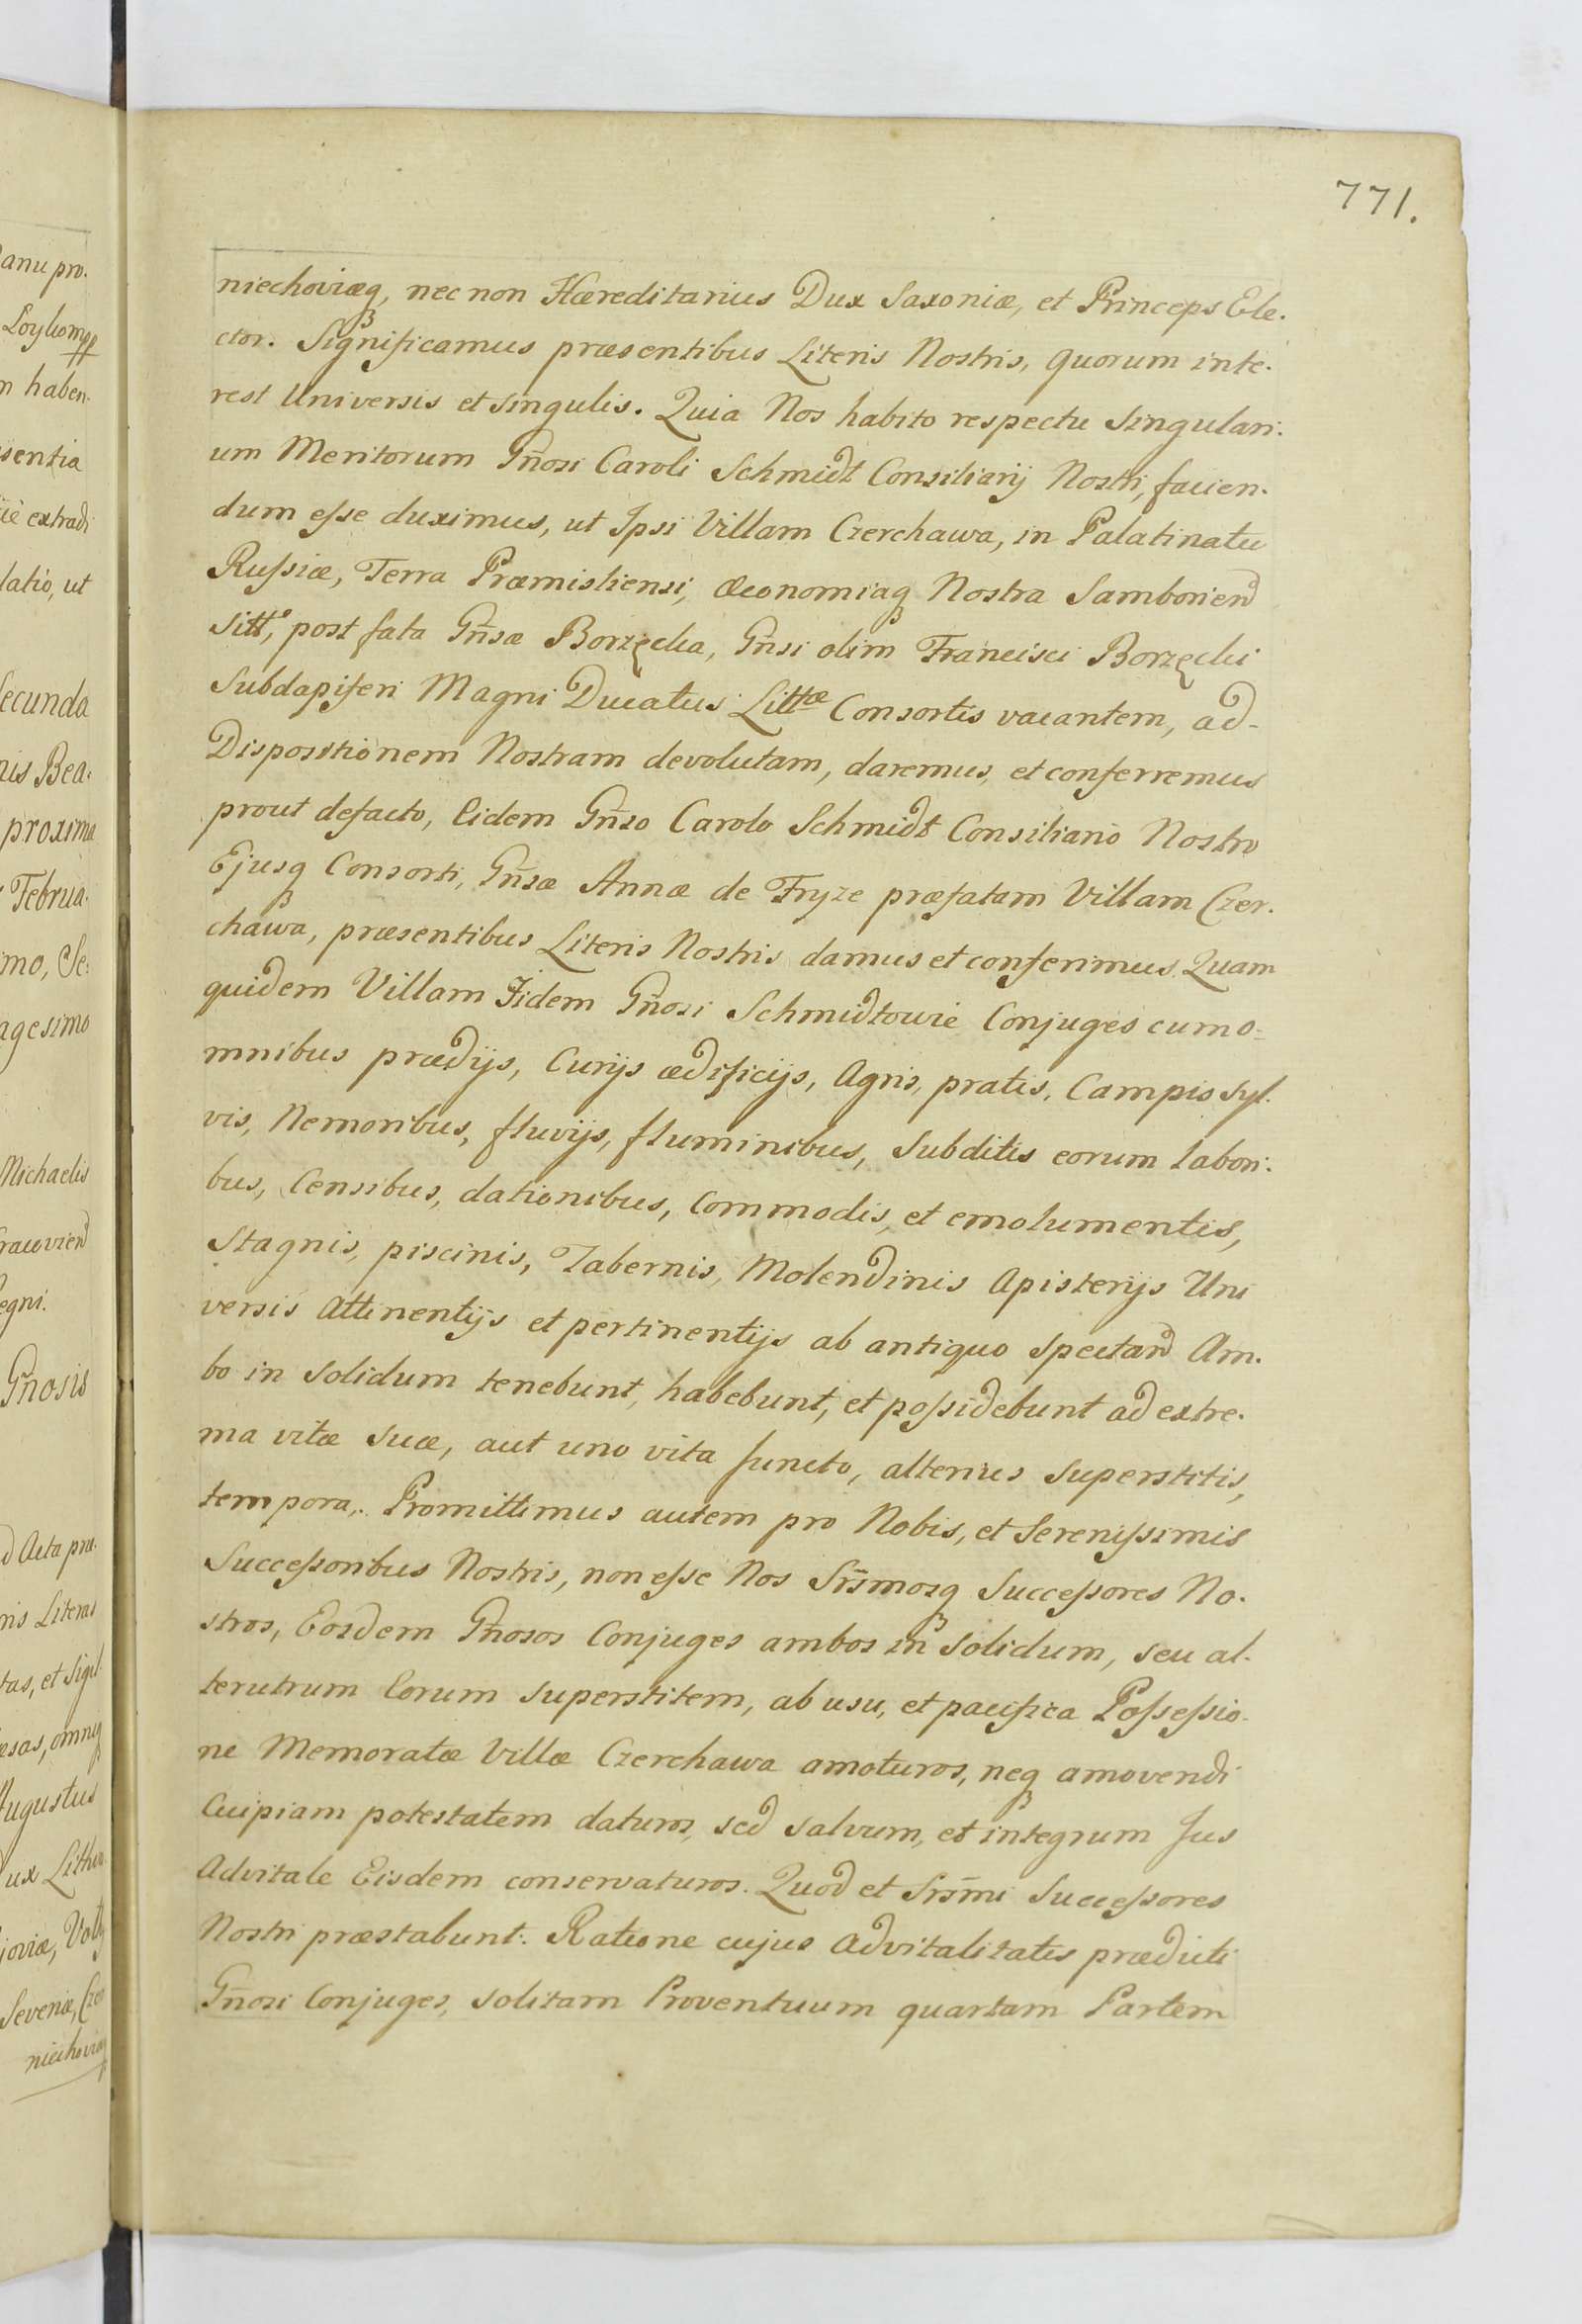 771.
niechoviæq, nec non Hæreditarius Dux Saxoniæ, et Princeps Ele.
ctor. Significamus præsentibus Literis Nostris, quorum inte.
rest Universis et singulis. Quia Nos habito respectu Singulari.
um Meritorum Gñosi Caroli Schmidt Consiliarij Nostri, facien.
dum eſse duximus, ut Ipsi Villam Czerchawa, in Palatinatu
Ruſsiæ, Terra Præmisliensi, Œconomiaq Nostra Samboriend
sittº, post fata Gñsæ Borzęcka, Gñsi olim Francisci Borzęcki
Subdapiferi Magni Ducatus Littæ Consortis vacantem, ad-
Dispositionem Nostram devolutam, daremus, et conferremus
prout defacto, Eidem Gñso Carolo Schmidt Consiliario Nostro
Ejusq Consorti, Gñsæ Annæ de Fryze præfatam Villam Czer.
chawa, præsentibus Literis Nostris damus et conferimus. Quam
quidem Villam Iidem Gñosi Schmidtowie Conjuges cum o-
mnibus prædijs, Curijs ædificijs, Agris, pratis, Campis syl.
vis, Nemoribus, fluvijs, fluminibus, Subditis eorum labori.
bus, Censibus, dationibus, Commodis, et emolumentis,
Stagnis, piscinis, Tabernis, Molendinis Apisterijs Uni
versis Attinentijs et pertinentijs ab antiquo spectand Am.
bo in solidum tenebunt, habebunt, et poſsidebunt ad extre.
ma vitæ suæ, aut uno vita functo, alterius superstitis,
tempora,. Promittimus autem pro Nobis, et Sereniſsimis
Succeſsoribus Nostris, non eſse Nos Srsm̃osq Succeſsores No.
stros, Eosdem Gñosos Conjuges ambos in solidum, seu al.
terutrum Eorum superstitem, ab usu, et pacifica Poſseſsio.
ne Memoratæ Villæ Czerchawa amoturos, neq amovendi
Cuipiam potestatem daturos, sed salvum, et integrum Jus
Advitale Eisdem conservaturos. Quod et Srsm̃i Succeſsores
Nostri præstabunt. Ratione cujus Advitalitatis prædicti
Gñosi Conjuges, solitam Proventuum quartam Partem